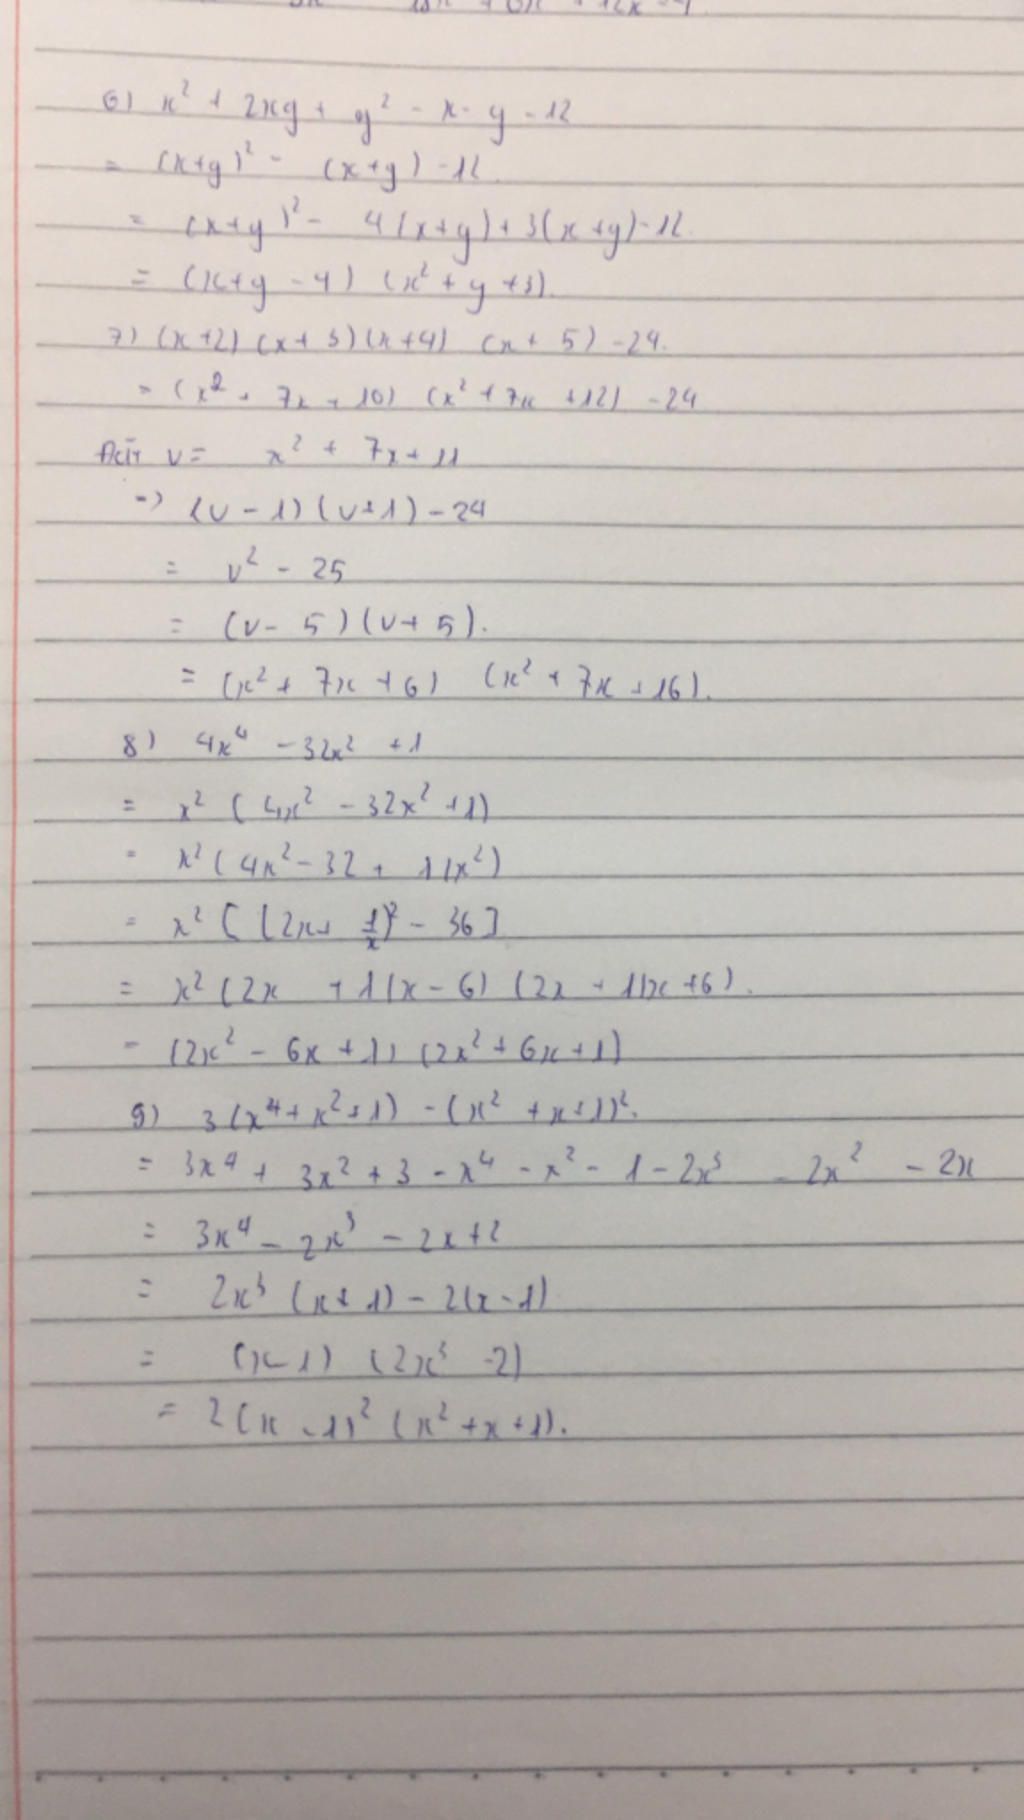 6) x² + 2xy + y² - x - y - 12
= (x+y)² - (x+y) - 12.
= (x+y)² - 4(x+y) + 3(x+y) - 12.
= (x+y - 4) (x² + y + 3).
7) (x+2) (x+3) (x+4) (x+5) - 24.
= (x² + 7x + 10) (x² + 7x + 12) - 24
v = x² + 7x + 11
=> (v - 1) (v+1) - 24
= v² - 25
= (v - 5) (v + 5).
= (x² + 7x + 6) (x² + 7x + 16).
8) 4x⁴ - 32x² + 1
= x² (4x² - 32x² + 1)
= x² (4x² - 32 + 1/x²)
= x² [(2x + 1/x)² - 36]
= x² (2x + 1/x - 6) (2x + 1/x + 6).
= (2x² - 6x + 1) (2x² + 6x + 1)
9) 3(x⁴ + x² + 1) - (x² + x + 1)².
= 3x⁴ + 3x² + 3 - x⁴ - x² - 1 - 2x³ - 2x² - 2x
= 3x⁴ - 2x³ - 2x + 2
= 2x³ (x + 1) - 2(x - 1)
= (x - 1) (2x³ - 2)
= 2(x - 1)² (x² + x + 1).